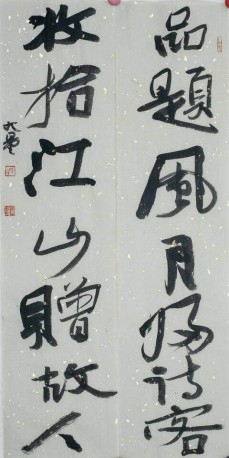 品題風月歸詩客
收拾江山贈故人